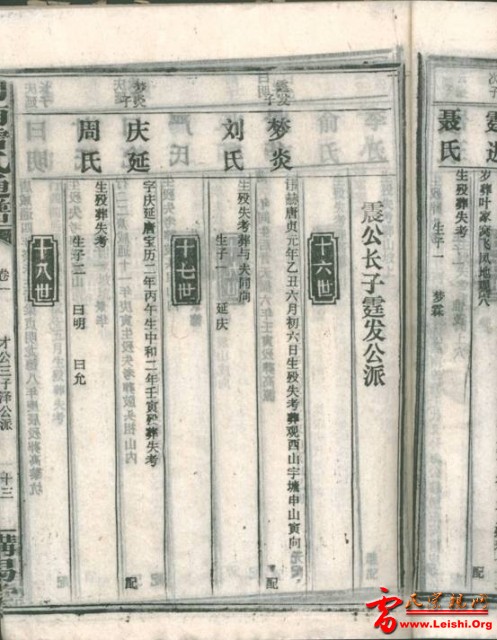 霆进
子
岁葬叶家湾飞凤地现穴
聂氏
生殁葬失考
生子一 梦霖
震公长子霆发公派
十六世
霆发
子
梦炎
赫唐贞元年乙丑六月初六日生殁失考葬观西山字塘申山寅向
配
刘氏
生殁失考葬与夫同向
生子一 延庆
十七世
梦炎
子
庆延
字庆延唐宝历二年丙午生中和二年壬寅殁葬失考
配
周氏
生殁葬失考
生子二 曰明 曰允
十八世
卷一
才公三子铎公派
十三
雷氏宗亲网
www.Leishi.Org